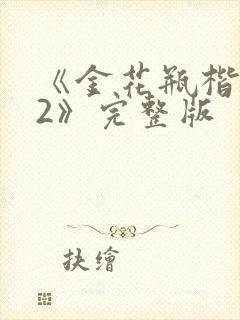 《金花瓶楷
2》完整版
抉繪